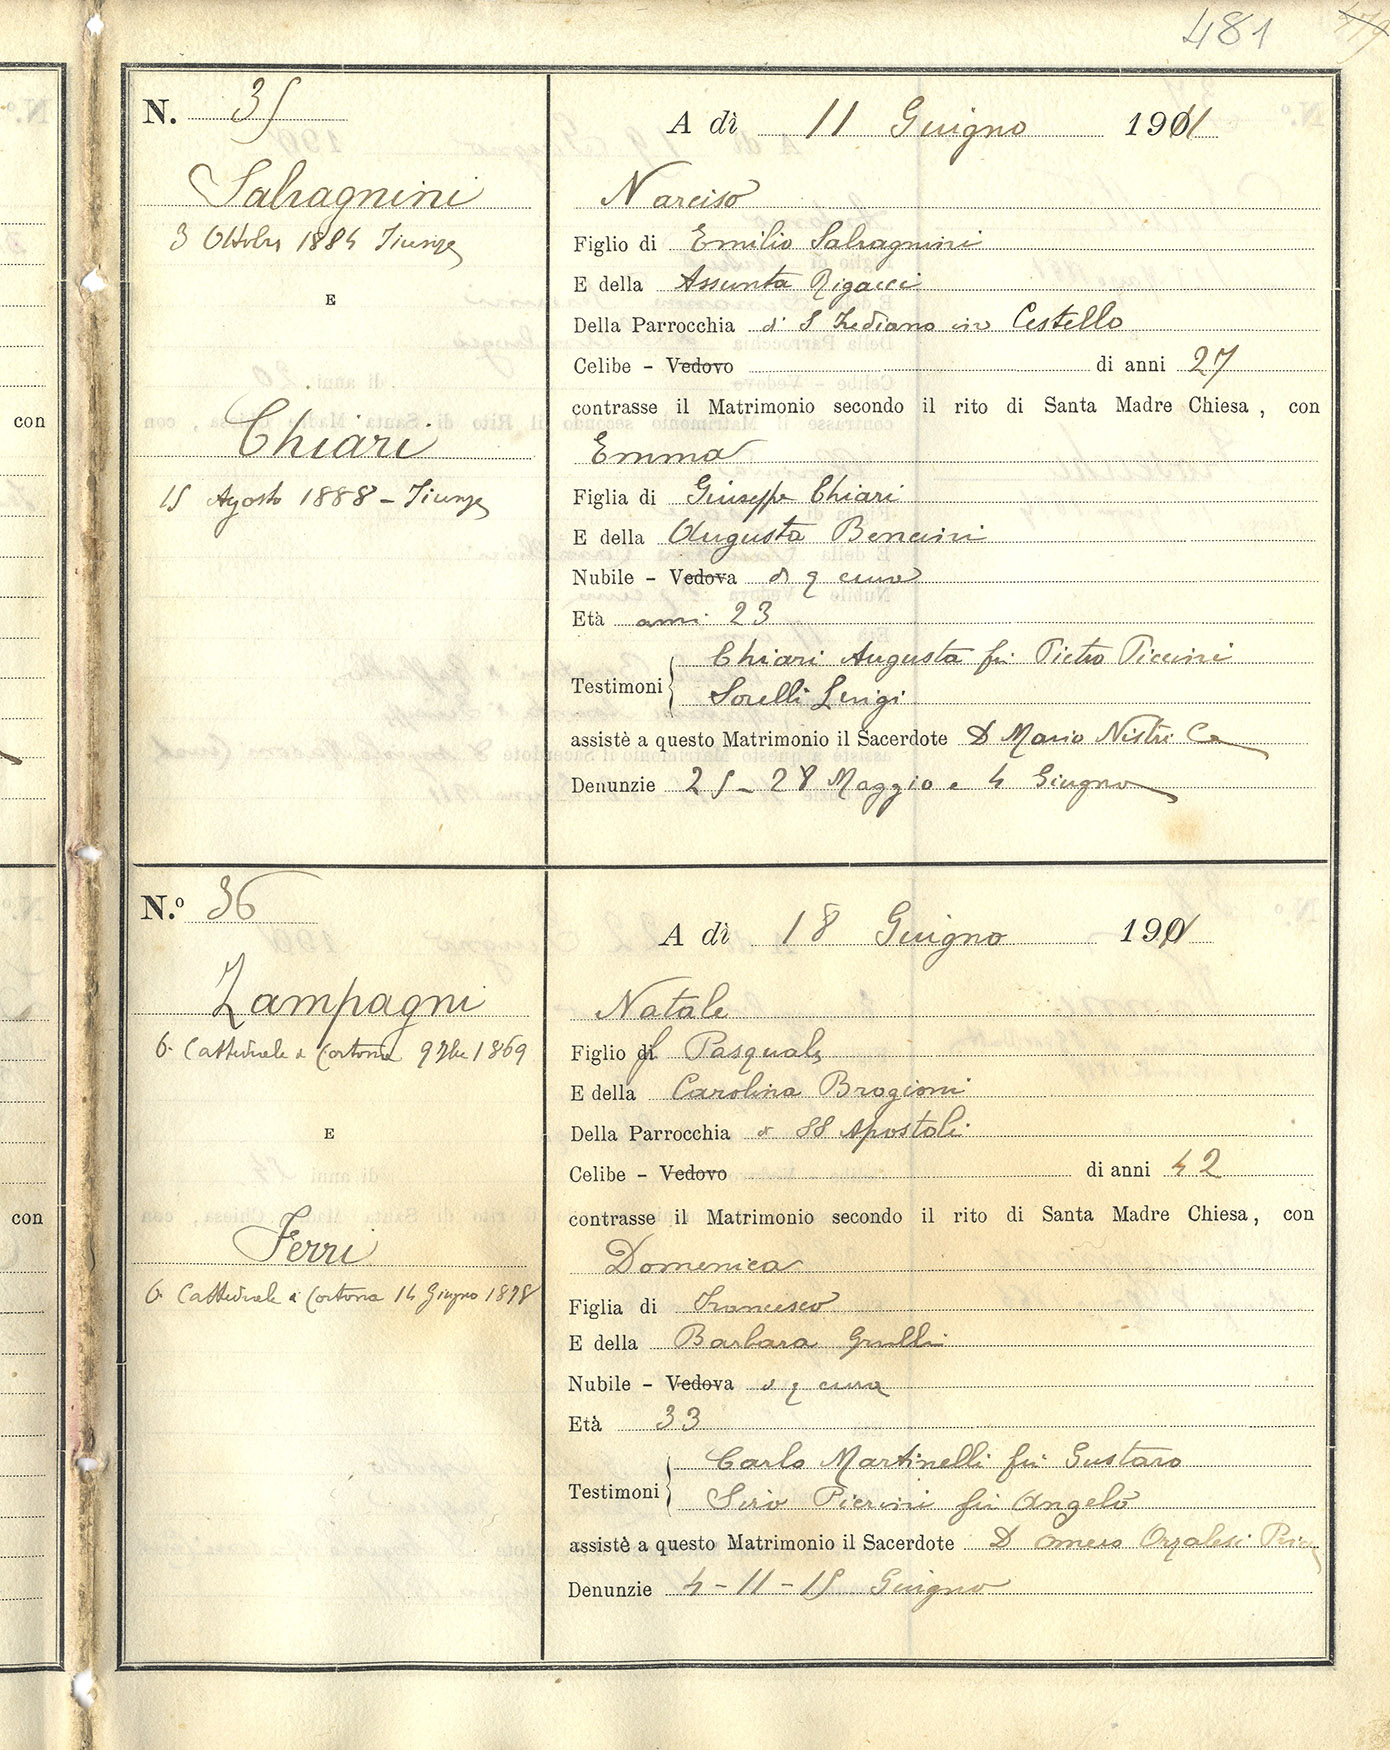 481
N. 35
A dì 11 Giugno 1911
Salvagnini
3 Ottobre 1884 Firenze
E
Chiari
15 Agosto 1888 - Firenze
Narciso
Figlio di Emilio Salvagnini
E della Assunta Rigacci
Della Parrocchia di S Frediano in Cestello
Celibe - Vedovo di anni 27
contrasse il Matrimonio secondo il rito di Santa Madre Chiesa, con
Emma
Figlia di Giuseppe Chiari
E della Augusta Bencini
Nubile - Vedova di q cura
Età anni 23
Testimoni Chiari Augusta fu Pietro Piccini
Sorelli Luigi
assistè a questo Matrimonio il Sacerdote D Mario Nistri
Denunzie 25 - 28 Maggio e 4 Giugno
N.º 36
A dì 18 Giugno 191
Zampagni
Cattedrale di Cortona 9 1869
E
Ferri
Cattedrale di Cortona 14 Giugno 1878
Natale
Figlio di Pasquale
E della Carolina Brogioni
Della Parrocchia di SS Apostoli
Celibe - Vedovo di anni 42
contrasse il Matrimonio secondo il rito di Santa Madre Chiesa, con
Domenica
Figlia di Francesco
E della Barbara Grulli
Nubile - Vedova di q cura
Età 33
Testimoni Carlo Martinelli fu Gustavo
Siro Pierini fu Angelo
assistè a questo Matrimonio il Sacerdote D Omero Orzalesi
Denunzie 4 - 11 - 15 Giugno
con
con